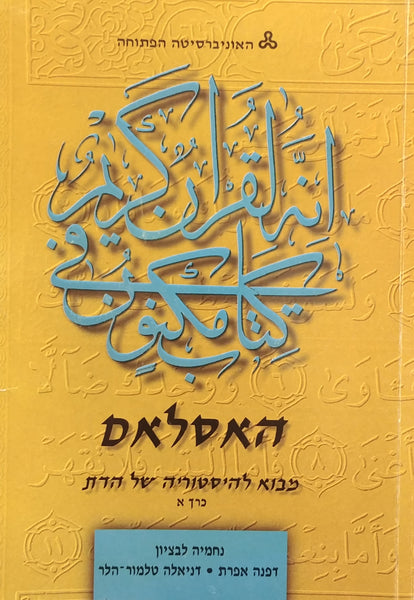 האוניברסיטה הפתוחה
إِنَّهُ لَقُرْآنٌ كَرِيمٌ
فِي كِتَابٍ مَكْنُونٍ
האסלאם
מבוא להיסטוריה של הדת
כרך א
נחמיה לבציון
דפנה אפרת • דניאלה טלמור-הלר